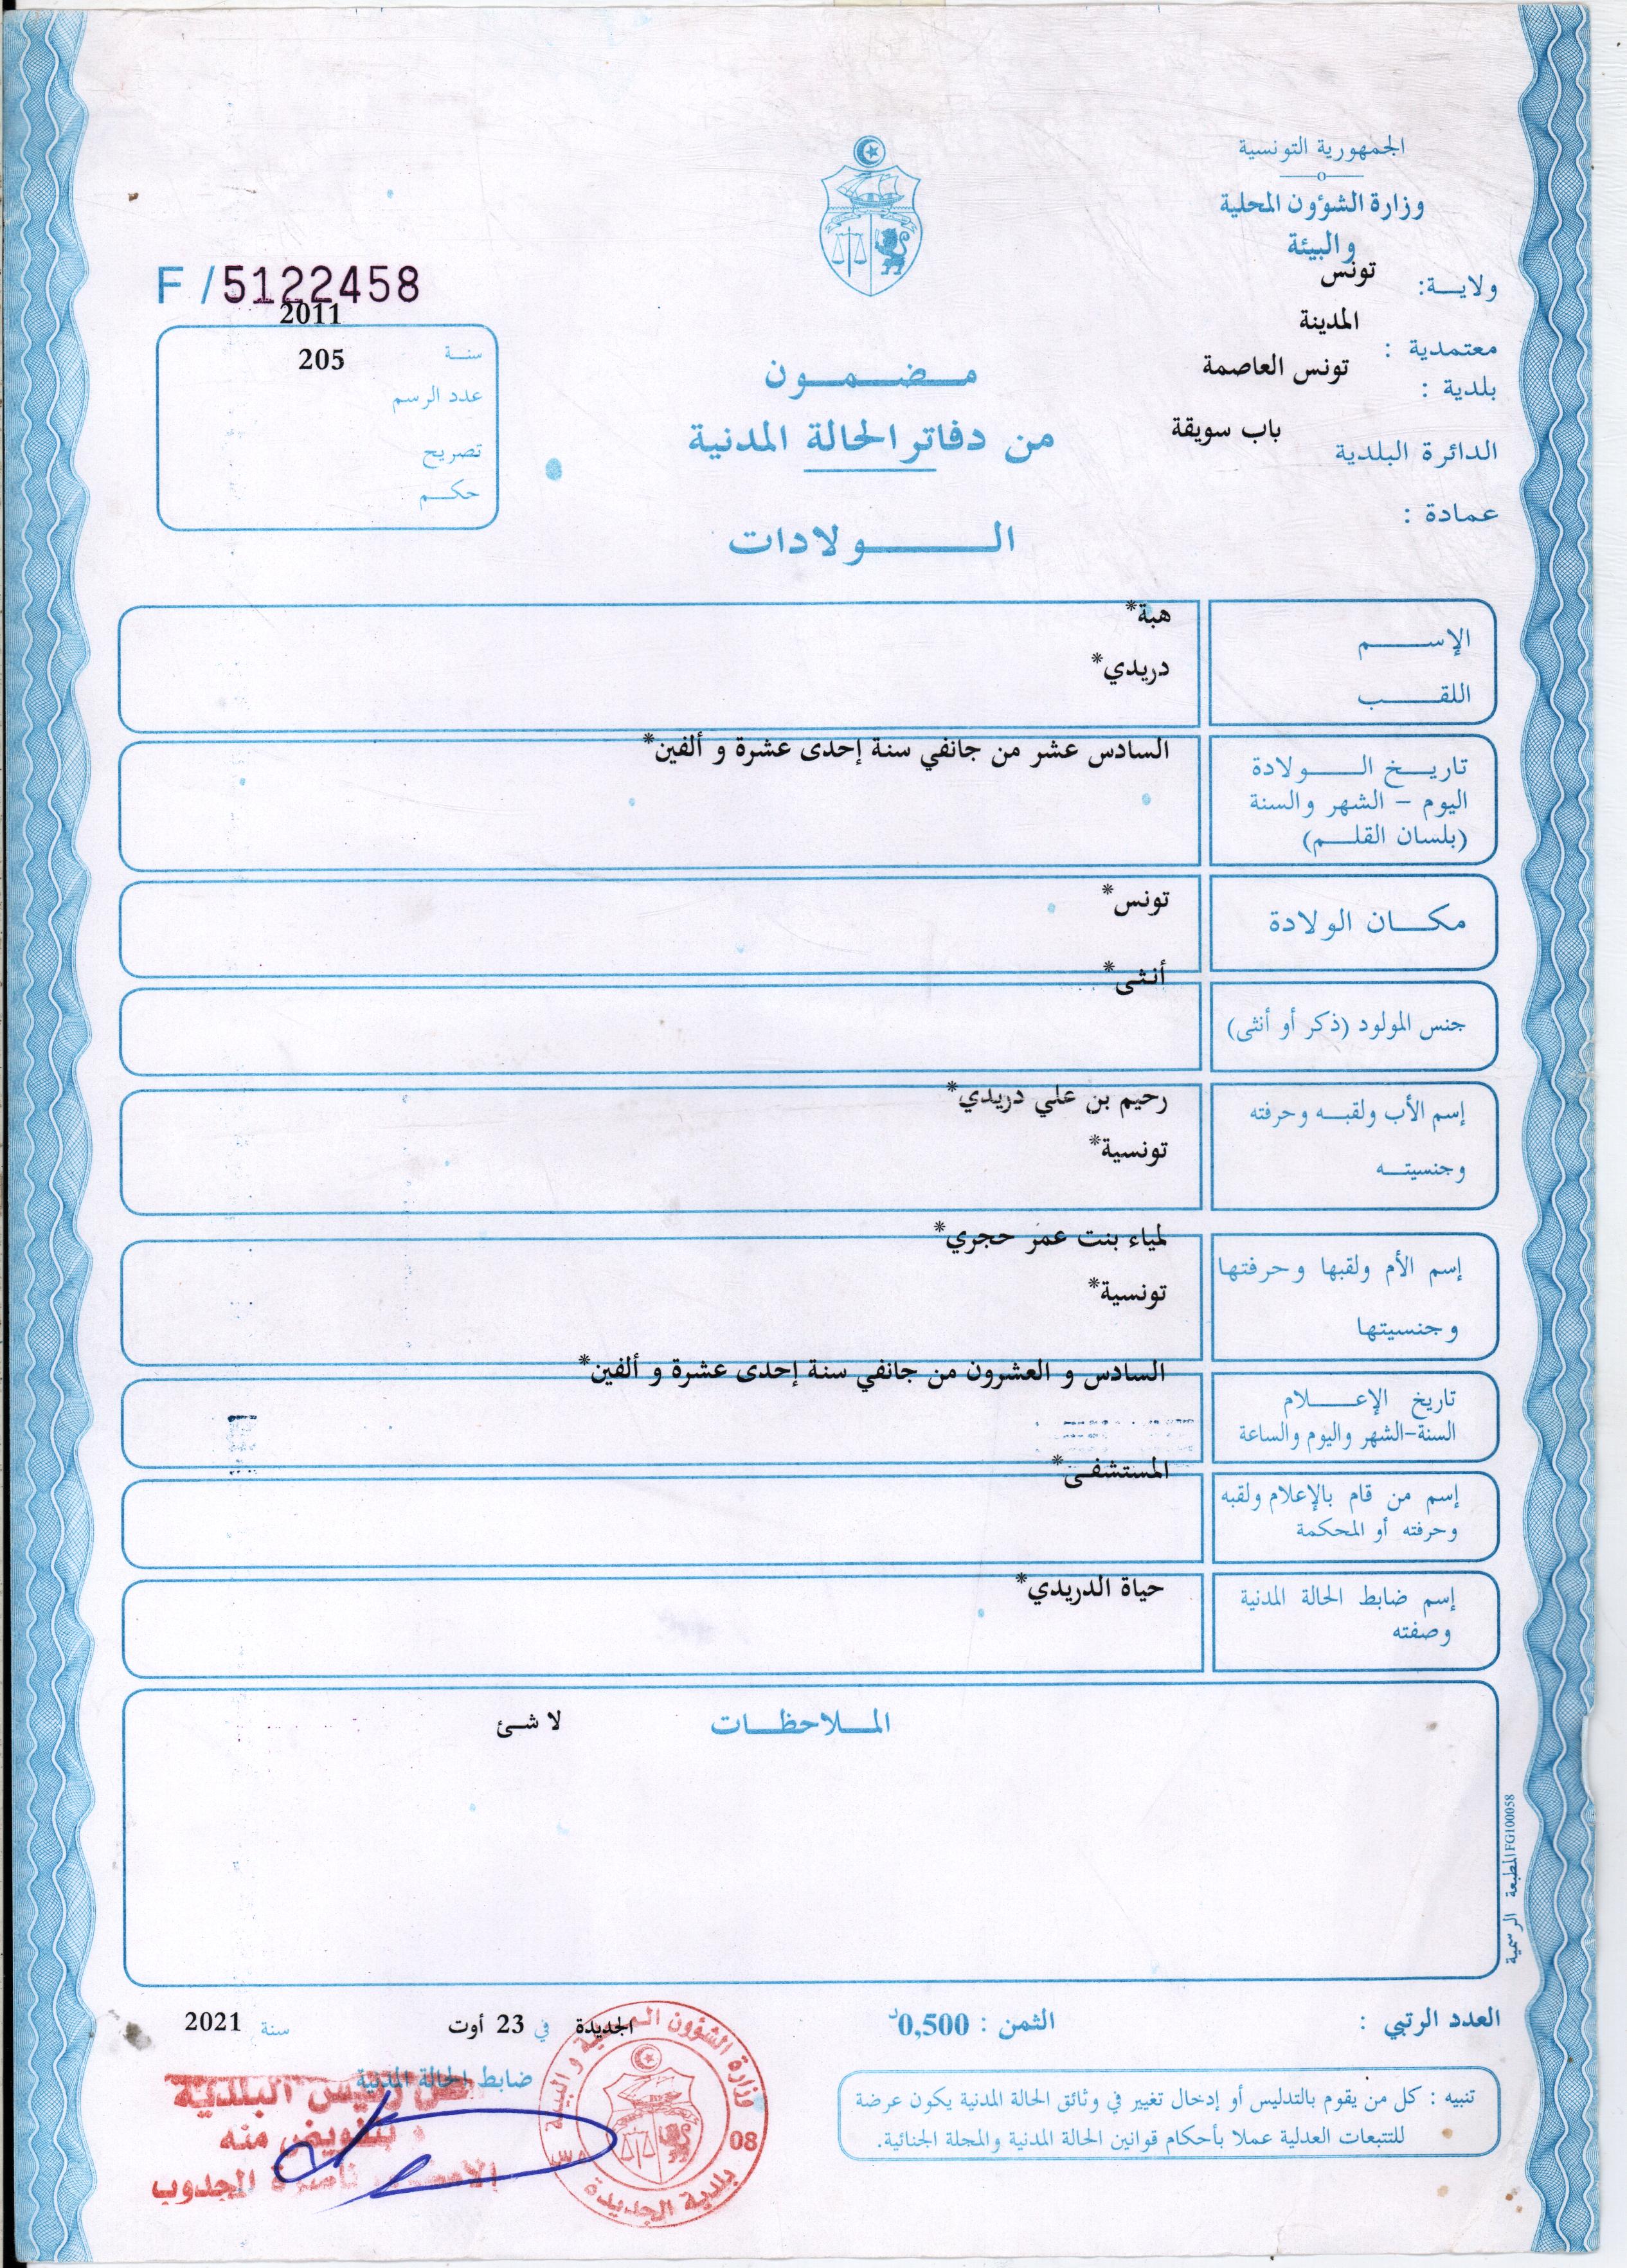 الجمهورية التونسية
وزارة الشؤون المحلية
والبيئة
ولاية: تونس
معتمدية : المدينة
بلدية : تونس العاصمة
الدائرة البلدية باب سويقة
عمادة :
F /5122458
سنة 2011
عدد الرسم 205
تصريح
حكم
مضمون
من دفاتر الحالة المدنية
الولادات
الإسم هبة*
اللقب دريدي*
تاريخ الولادة السادس عشر من جانفي سنة إحدى عشرة و ألفين*
اليوم - الشهر والسنة
(بلسان القلم)
مكان الولادة تونس*
جنس المولود (ذكر أو أنثى) أنثى*
إسم الأب ولقبه وحرفته رحيم بن علي دريدي*
وجنسيته تونسية*
إسم الأم ولقبها وحرفتها لمياء بنت عمر حجري*
وجنسيتها تونسية*
تاريخ الإعلام السادس و العشرون من جانفي سنة إحدى عشرة و ألفين*
السنة-الشهر واليوم والساعة
إسم من قام بالإعلام ولقبه المستشفى*
وحرفته أو المحكمة
إسم ضابط الحالة المدنية حياة الدريدي*
وصفته
الملاحظات لا شئ
المطبعة الرسمية FG100058
العدد الرتبي :
الثمن : 0,500د
الجديدة في 23 أوت سنة 2021
ضابط الحالة المدنية
عن رئيس البلدية
بتفويض منه
ناصرة المجدوب
وزارة الشؤون المحلية والبيئة
08
بلدية الجديدة
تنبيه : كل من يقوم بالتدليس أو إدخال تغيير في وثائق الحالة المدنية يكون عرضة
للتتبعات العدلية عملا بأحكام قوانين الحالة المدنية والمجلة الجنائية.